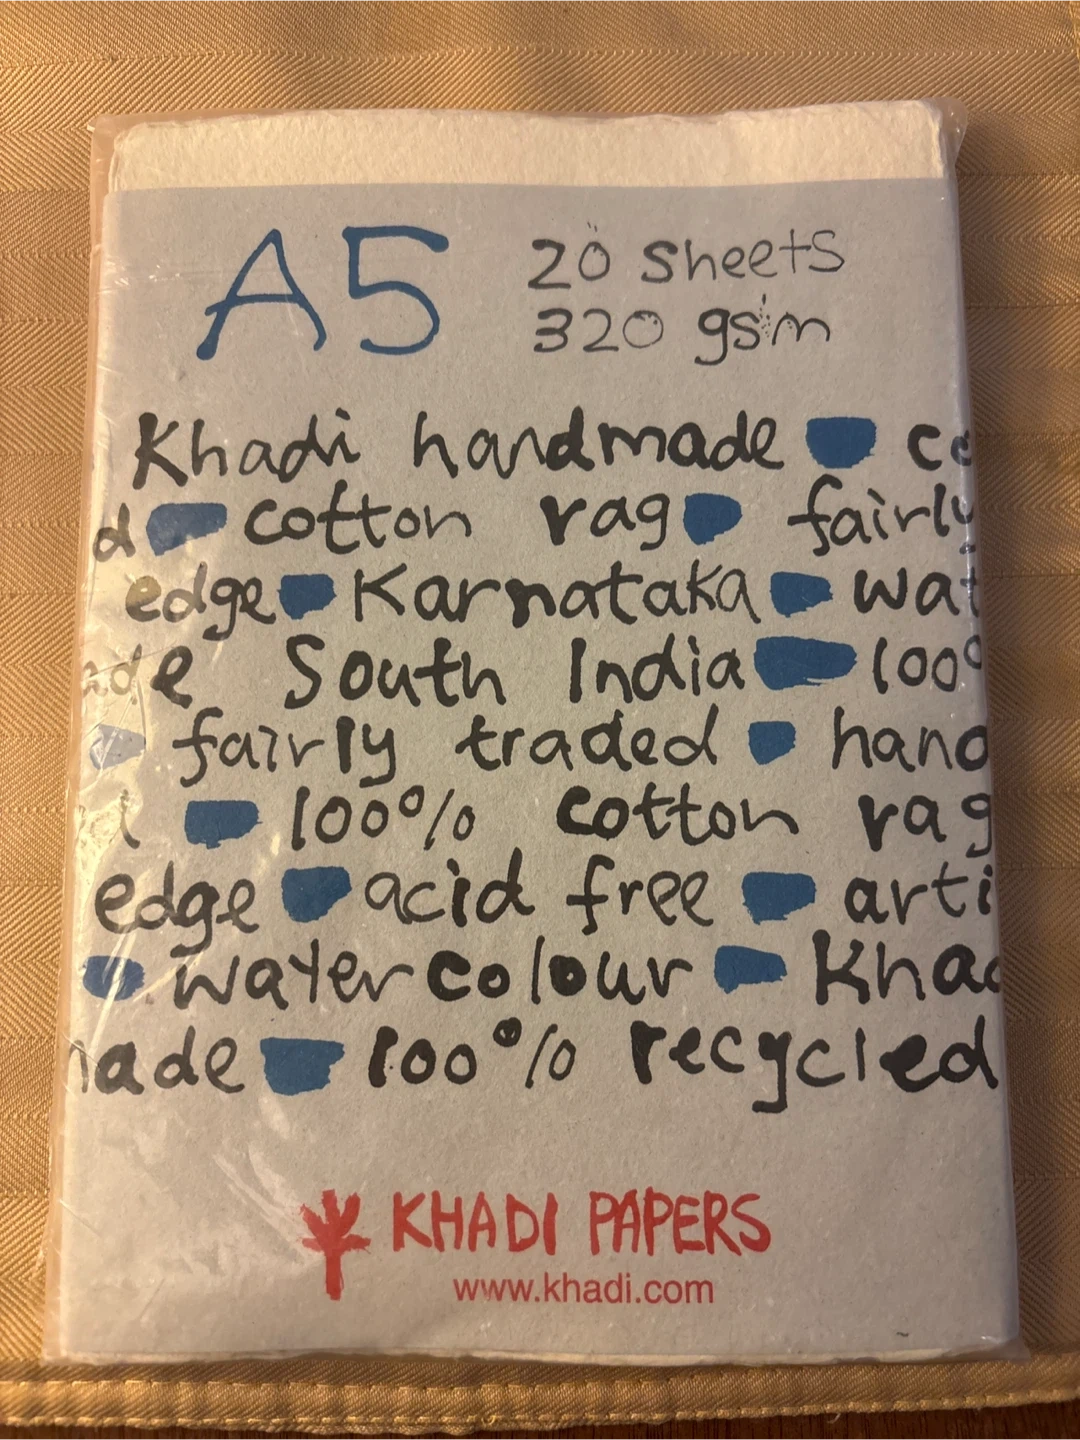 A5
20 sheets
320 gsm
Khadi handmade
cotton rag fairly
edge Karnataka
South India 100%
fairly traded
100% cotton rag
edge acid free
watercolour
100% recycled
KHADI PAPERS
www.khadi.com